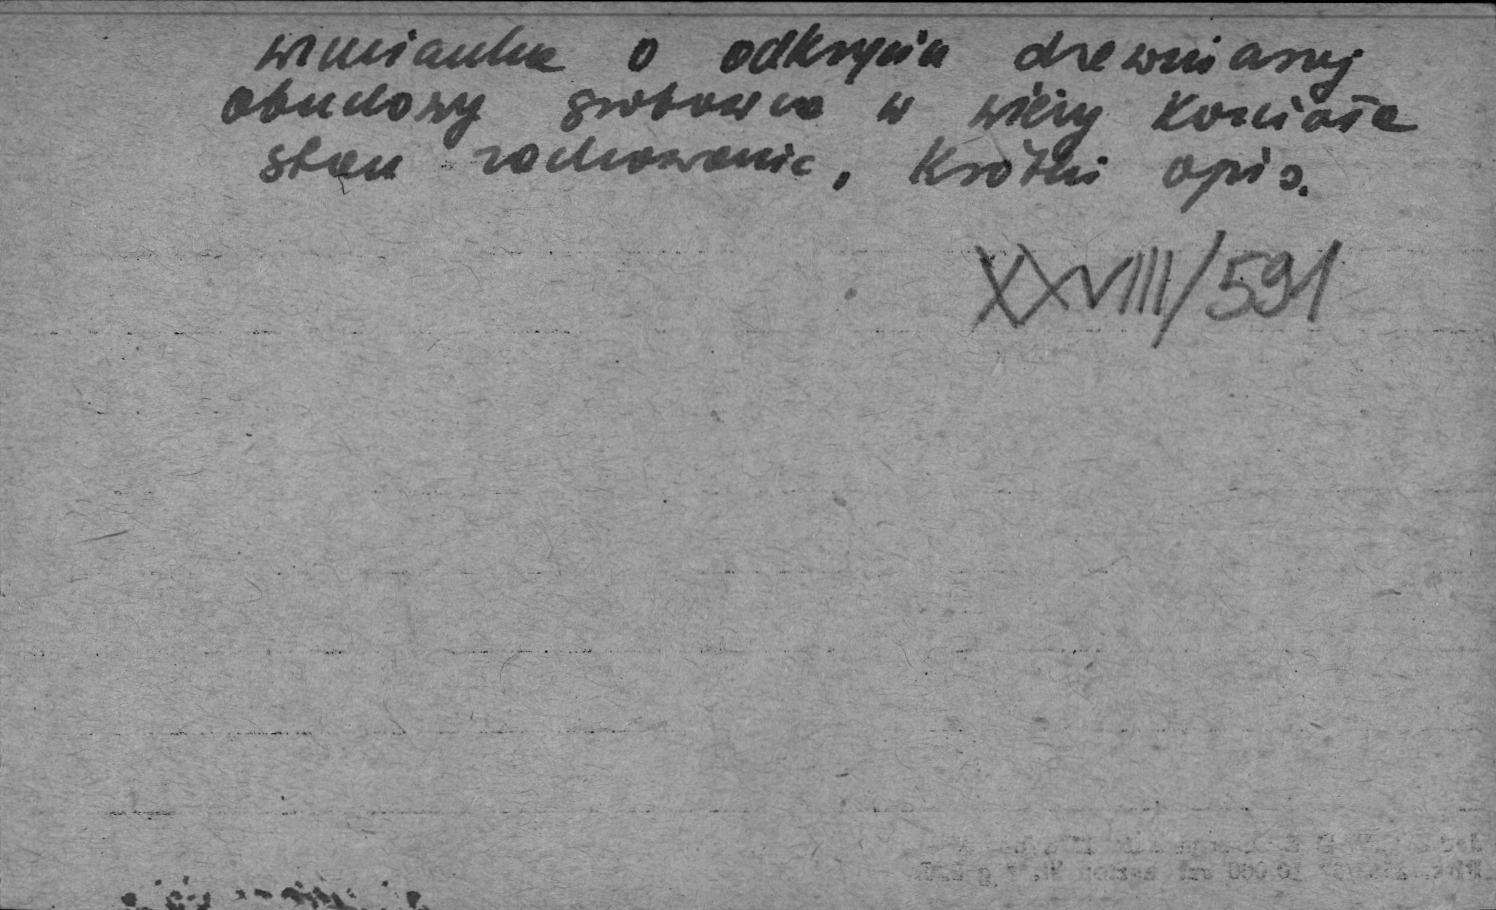 wzmianka o odkryciu drewnianej
obudowy grobowca w wieży kościoła
stan zachowania, krótki opis.
XXVIII/591